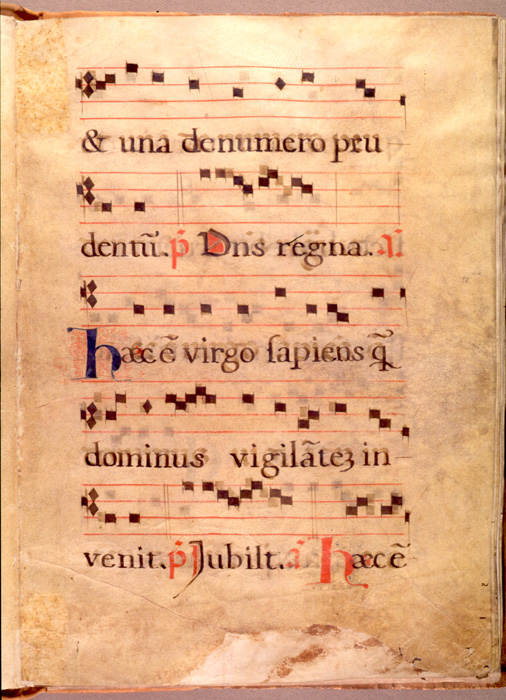 & una denumero pru
dentũ. p̃ Dns regna. ã
Hæc ẽ virgo sapiens q̃
dominus vigilãteʒ in
venit. p̃ Jubilt. ã Hæc ẽ